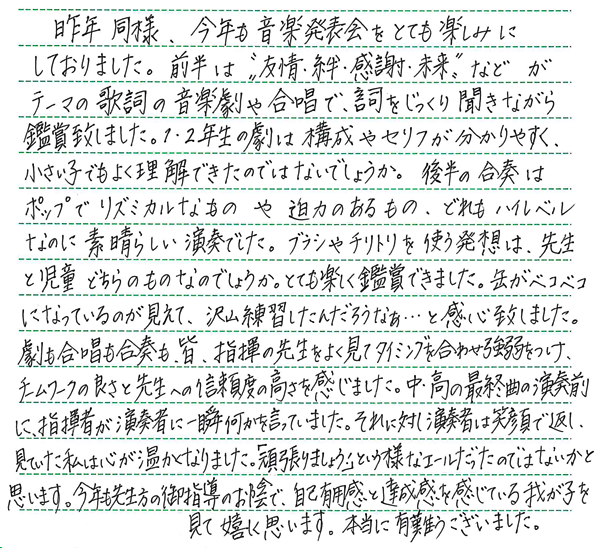 昨年同様、今年も音楽発表会をとても楽しみに
しておりました。前半は〝友情・絆・感謝・未来〟などが
テーマの歌詞の音楽劇や合唱で、詞をじっくり聞きながら
鑑賞致しました。1・2年生の劇は構成やセリフが分かりやすく、
小さい子でもよく理解できたのではないでしょうか。後半の合奏は
ポップでリズミカルなものや迫力のあるもの、どれもハイレベル
なのに素晴らしい演奏でした。ブラシやチリトリを使う発想は、先生
と児童どちらのものなのでしょうか。とても楽しく鑑賞できました。缶がベコベコ
になっているのが見えて、沢山練習したんだろうなぁ…と感心致しました。
劇も合唱も合奏も、皆、指揮の先生をよく見てタイミングを合わせ強弱をつけ、
チームワークの良さと先生への信頼度の高さを感じました。中・高の最終曲の演奏前
に、指揮者が演奏者に一瞬何かを言っていました。それに対し演奏者は笑顔で返し、
見ていた私は心が温かくなりました。「頑張りましょう」という様なエールだったのではないかと
思います。今年も先生方の御指導のお陰で、自己有用感と達成感を感じている我が子を
見て嬉しく思います。本当に有難うございました。